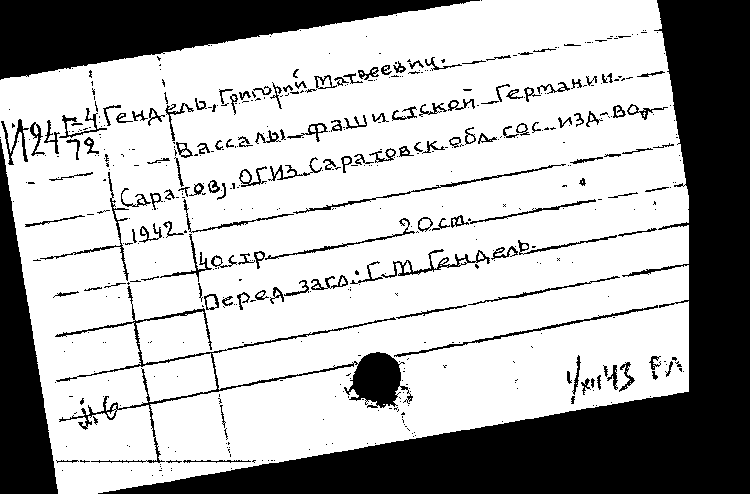 И24 Г-4/72
Гендель, Григорий Матвеевич.
Вассалы фашистской Германии.
Саратов, ОГИЗ. Саратовск. обл. гос. изд-во,
1942.
40 стр. 20 см.
Перед загл.: Г. М. Гендель.
1/XII 43